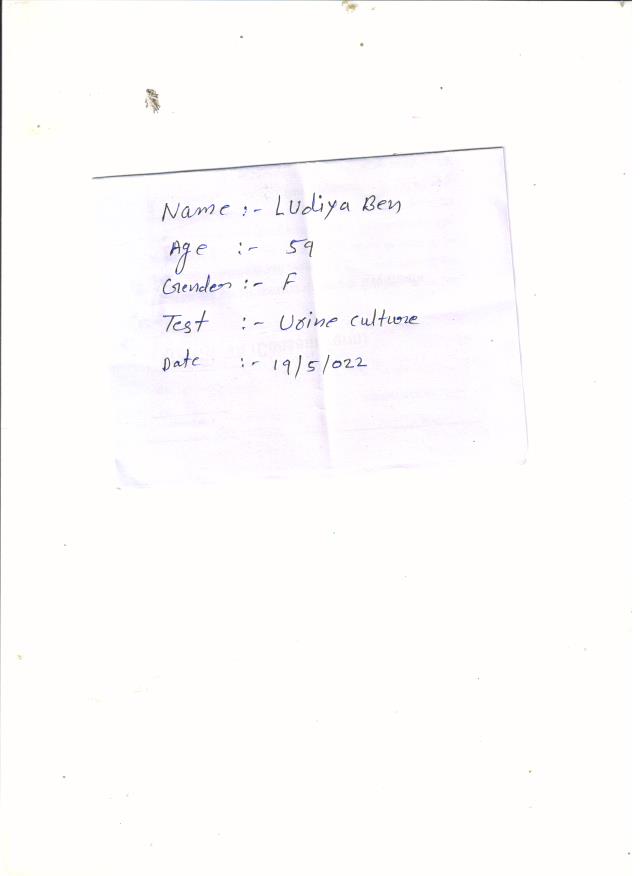 Name :- LUdiya Ben
Age :- 59
Gender :- F
Test :- Urine culture
Date :- 19/5/022